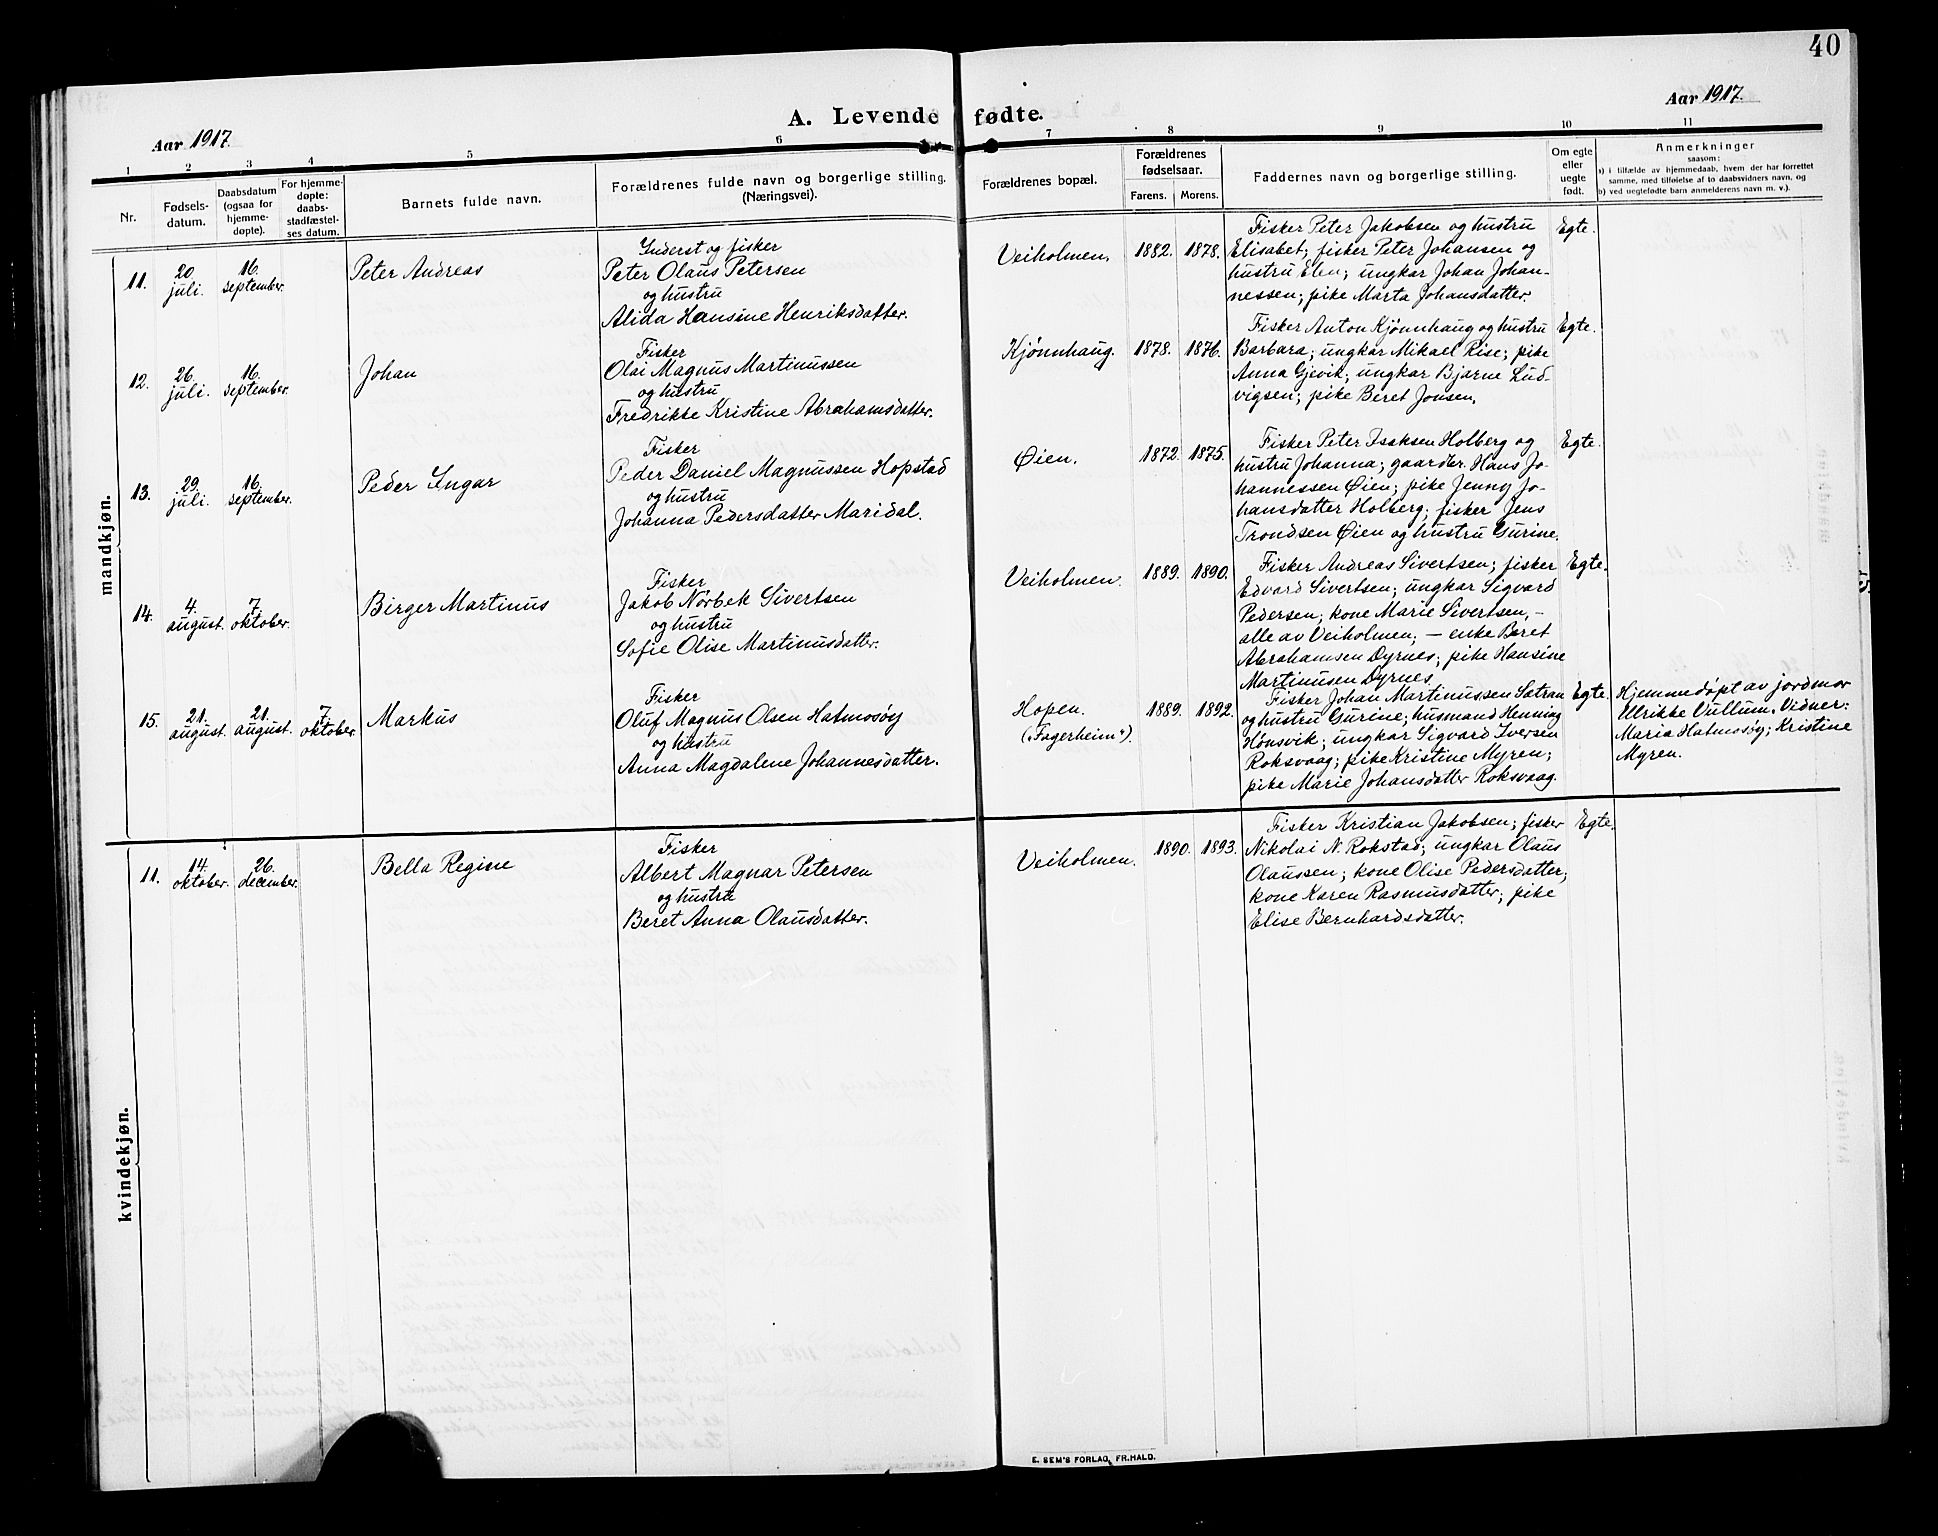 40
Aar 1917.
A. Levende fødte.
Aar 1917.
1 2 3 4 5 6 7 8 9 10 11
Nr.
Fødsels-
datum.
Daabsdatum
(ogsaa for
hjemme-
døpte).
For hjemme-
døpte:
daabs-
stadfæstel-
ses datum.
Barnets fulde navn.
Forældrenes fulde navn og borgerlige stilling.
(Næringsvei).
Forældrenes bopæl.
Forældrenes
fødselsaar.
Farens. Morens.
Faddernes navn og borgerlige stilling.
Om egte
eller
uegte
født.
Anmerkninger
saasom:
a) i tilfælde av hjemmedaab, hvem der har forrettet
samme, med tilføielse af to daabsvidners navn, og
b) ved uegtefødte barn anmelderens navn m. v.).
mandkjøn.
11.
20.
juli.
16.
september.
Peter Andreas
Inderst og fisker
Peter Olaus Petersen
og hustru
Alida Hansine Henriksdatter.
Veiholmen.
1882. 1878.
Fisker Peter Jakobsen og hustru
Elisabet; fisker Peter Johansen og
hustru Elen; ungkar Johan Johan-
nessen; pike Marta Johansdatter.
Egte.
12.
26.
juli.
16.
september.
Johan
Fisker
Olai Magnus Martinussen
og hustru
Fredrikke Kristine Abrahamsdatter.
Kjønnhaug.
1878. 1876.
Fisker Anton Kjønnhaug og hustru
Barbara; ungkar Mikael Rise; pike
Anna Gjevik; ungkar Bjarne Lud-
vigsen; pike Beret Jonsen.
Egte.
13.
29.
juli.
16.
september.
Peder Ingar
Fisker
Peder Daniel Magnussen Hopstad
og hustru
Johanna Pedersdatter Maridal.
Øien.
1872. 1875.
Fisker Peter Isaksen Holberg og
hustru Johanna; gaardbr. Hans Jo-
hannessen Øien; pike Jenny Jo-
hansdatter Holberg; fisker Jens
Trondsen Øien og hustru Gurine.
Egte.
14.
4.
august.
7.
oktober.
Birger Martinus
Fisker
Jakob Nörbek Sivertsen
og hustru
Sofie Olise Martinusdatter.
Veiholmen.
1889. 1890.
Fisker Andreas Sivertsen; fisker
Edvard Sivertsen; ungkar Sigvard
Pedersen; kone Marie Sivertsen, -
alle av Veiholmen; - enke Beret
Abrahamsen Dyrnes; pike Hansine
Martinusen Dyrnes
Egte.
15.
21.
august.
21.
august.
7.
oktober.
Markus
Fisker
Oluf Magnus Olsen Hatmosøy
og hustru
Anna Magdalene Johannesdatter.
Hopen.
("Fagerheim").
1889. 1892.
Fisker Johan Martinussen Sætran
og hustru Gurine; husmand Henning
Hønsvik; ungkar Sigvard Iversen
Roksvaag; pike Kristine Myren;
pike Marie Johansdatter Roksvaag.
Egte.
Hjemmedøpt av jordmor
Ulrikke Vullum. Vidner:
Maria Hatmosøy; Kristine
Myren.
kvindekjøn.
11.
14.
oktober.
26.
december.
Bella Regine
Fisker
Albert Magnar Petersen
og hustru
Beret Anna Olausdatter.
Veiholmen.
1890. 1893.
Fisker Kristian Jakobsen; fisker
Nikolai N. Rokstad; ungkar Olaus
Olaussen; kone Olise Pedersdatter;
kone Karen Rasmusdatter; pike
Elise Bernhardsdatter.
Egte.
E. SEM'S FORLAG, FR.HALD.